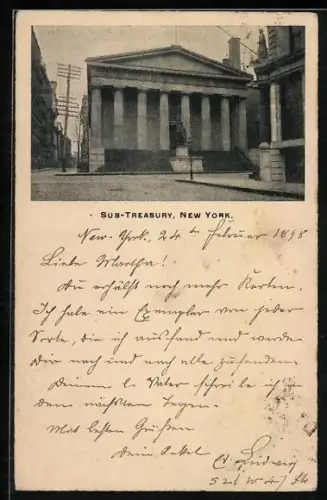 SUB-TREASURY, NEW YORK.
New-York, 24th Februar 1898
Liebe Martha!
Du erhälst noch mehr Karten.
Ich habe ein Exemplar von jeder
Sorte, die ich auffand und werde
Dir nach und nach alle zusenden.
Deinem l. Vater schreibe ich in
den nächsten Tagen.
Mit besten Grüssen
Dein Onkel
Ludwig
W 47 Str